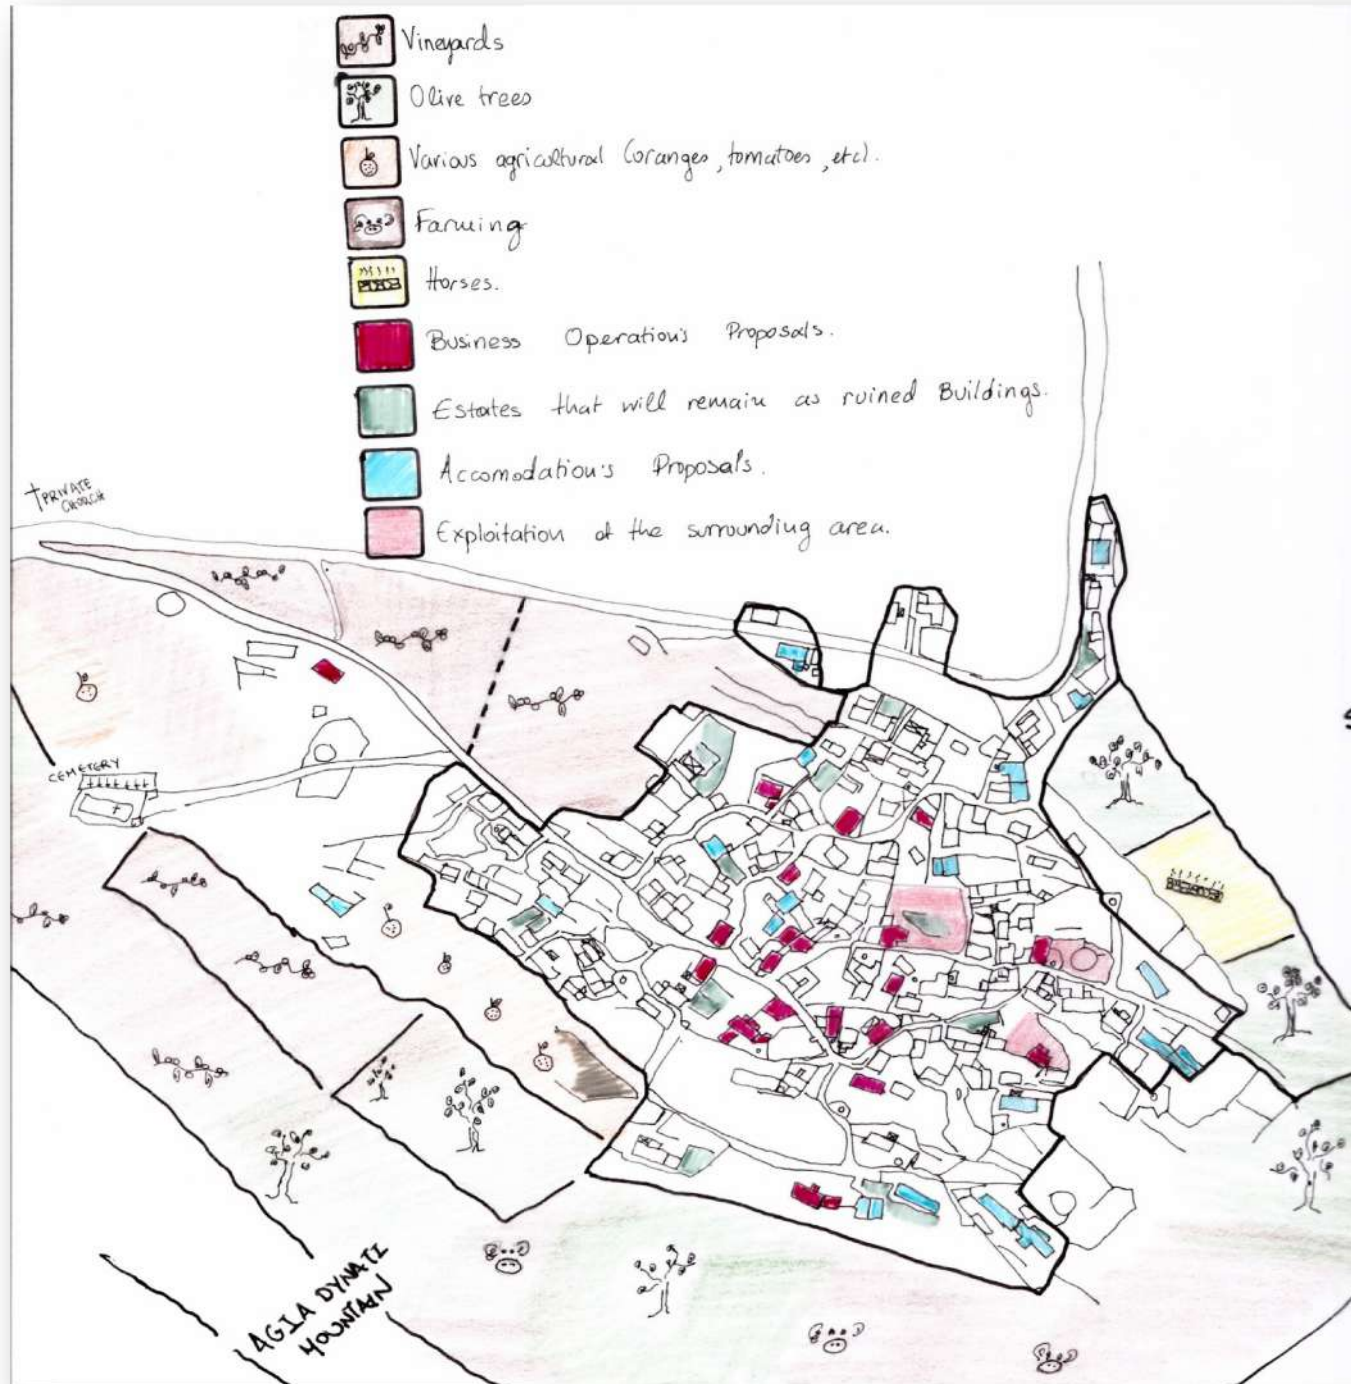 Vineyards
Olive trees
Various agricultural (oranges, tomatoes, etc).
Farming
Horses.
Business Operation's Proposals.
Estates that will remain as ruined Buildings.
Accomodation's Proposals.
Exploitation of the surrounding area.
PRIVATE
CHURCH
CEMETERY
AGIA DYNATI
MOUNTAIN